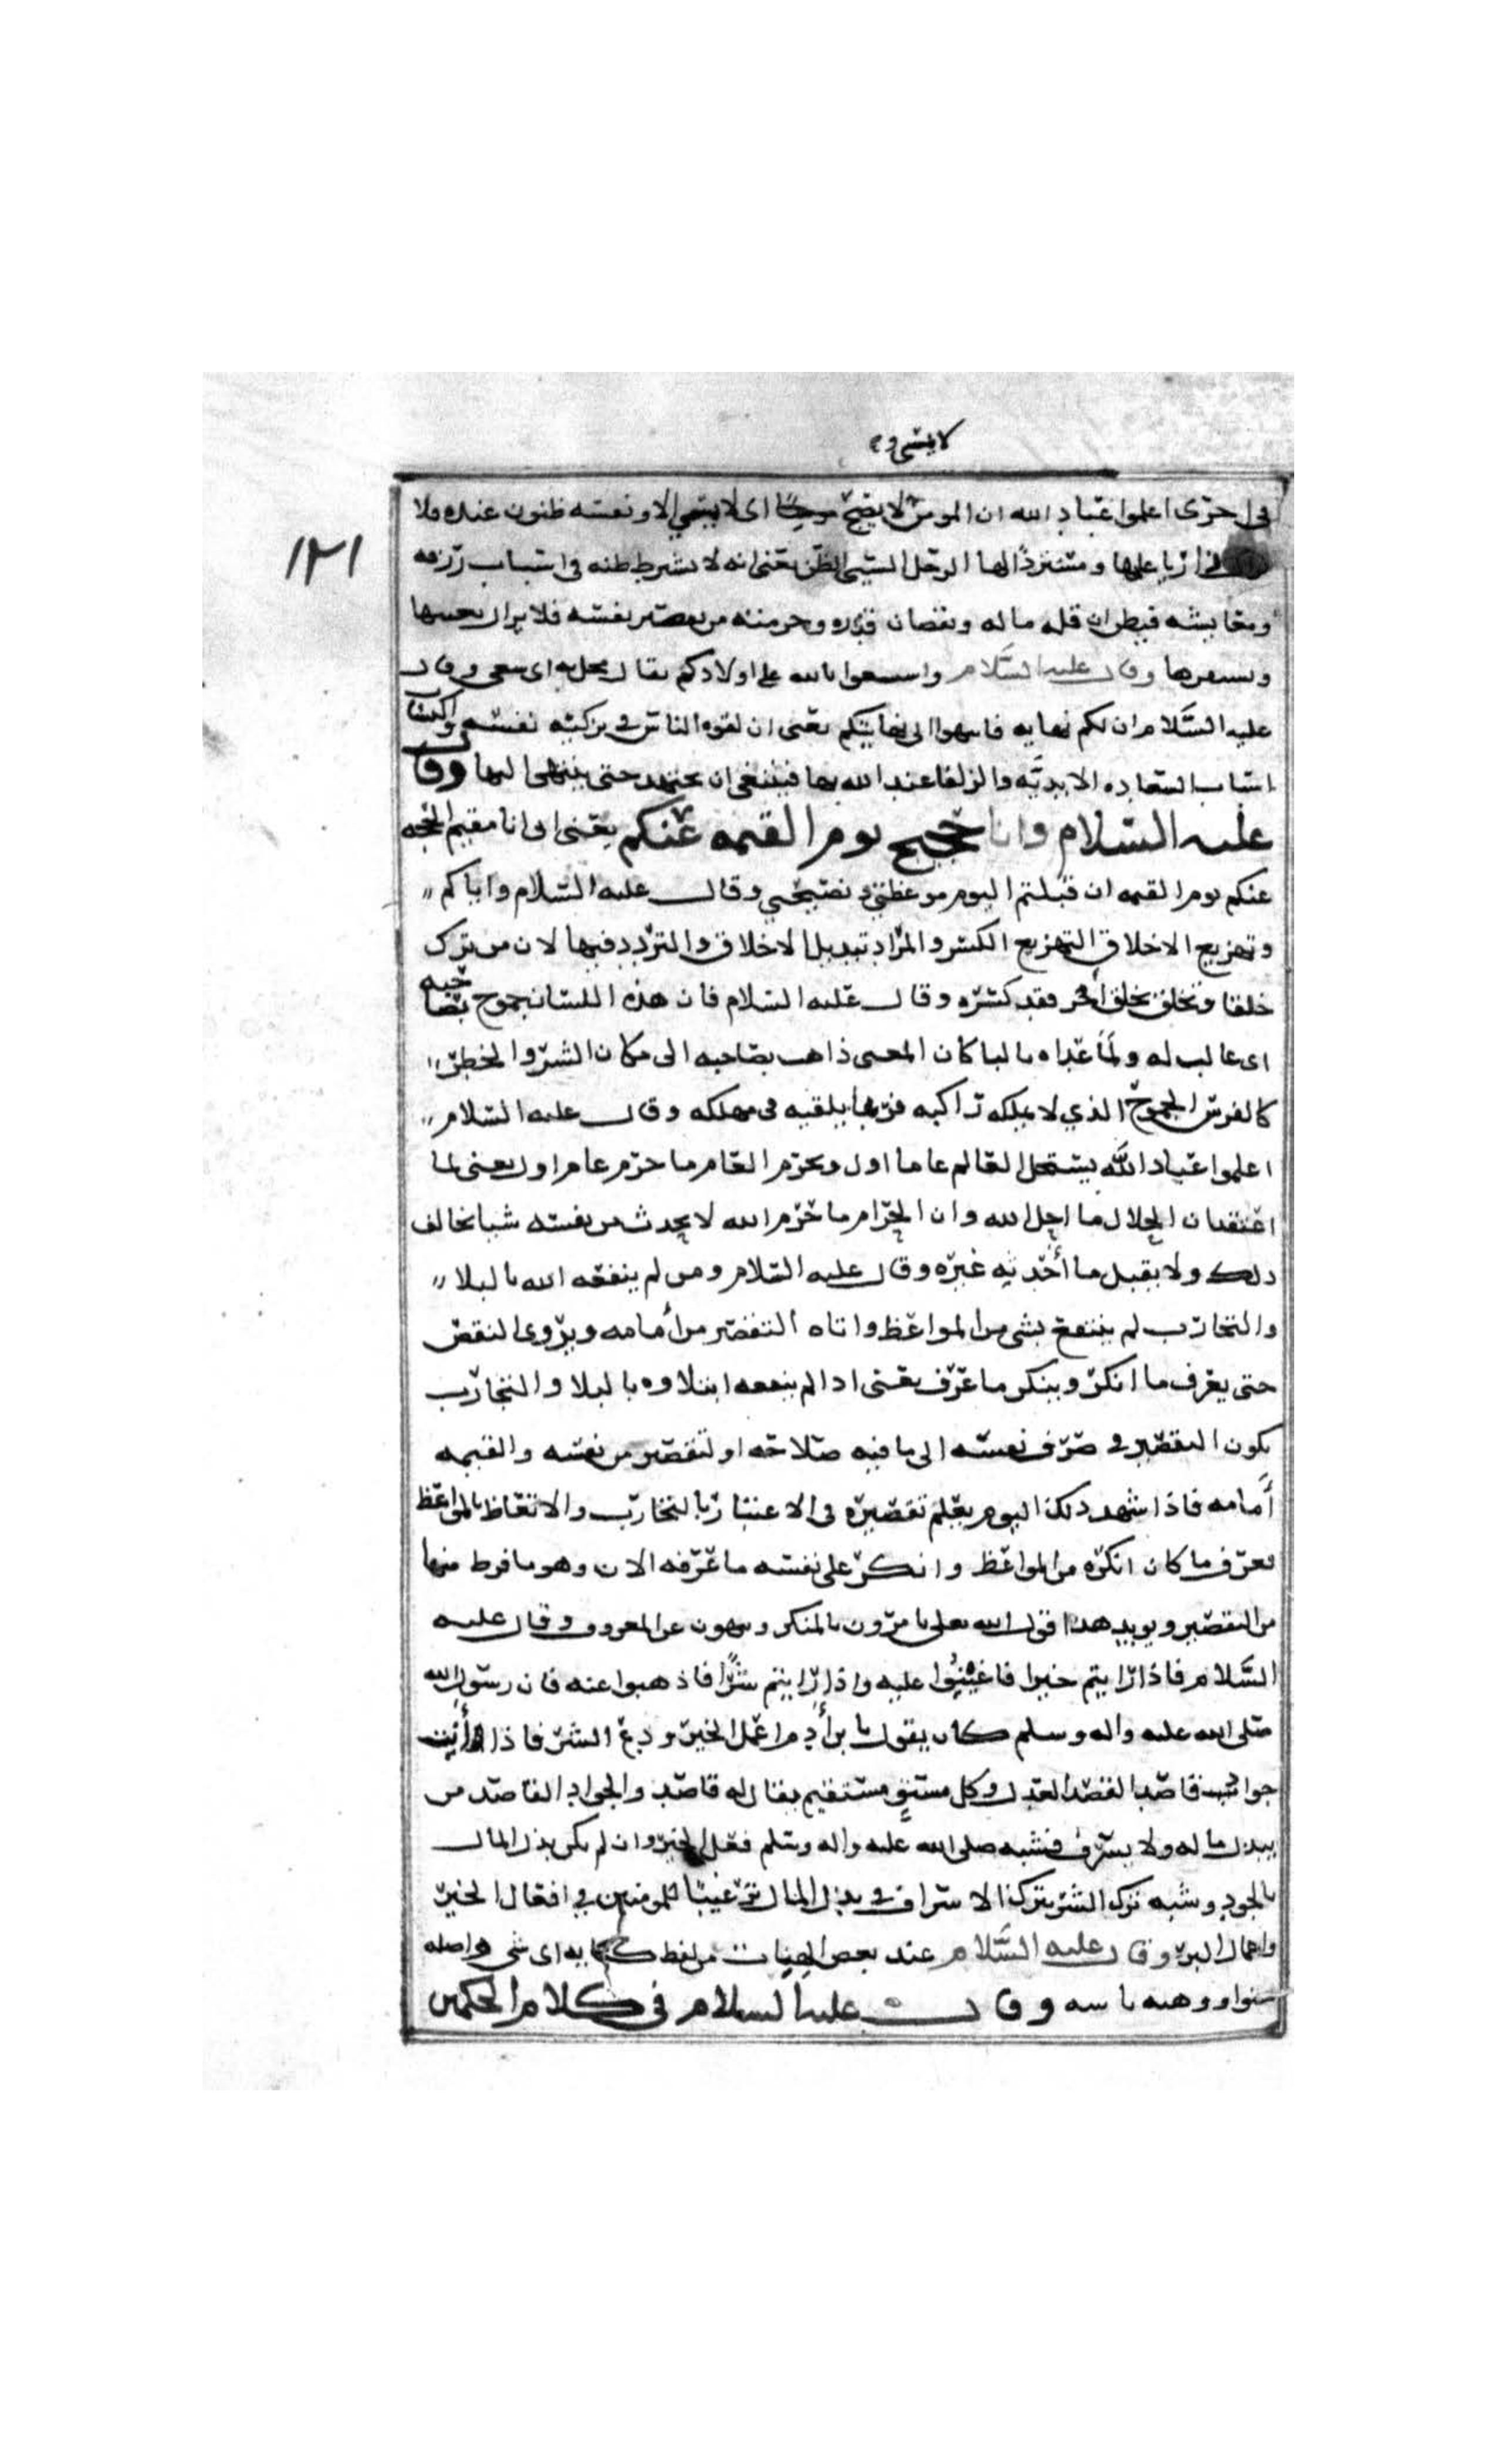 لا يمشي و
١٢١
في اخرى اعلموا عباد الله ان المومن لا يصبح اى لا يمسي الا ونفسه ظنون عنده فلا
زاريا عليها ومستزيدًا لها الرجل السيى الظن يعنى انه لا
ومعايشه فيظن ان قله ماله ونقصان قدره وحرمته من نفسه فلا يزال يعيبها
وقال عليه السَّلام بالله على اولادكم يقال اى سعى وقال
عليه السَّلام ان لكم نهايه فانتهوا الى نهايتكم يعنى ان الناس في تزكيه نفسه واكتساب
اسباب السعاده الابديَّه والزلفا عند الله بها فينبغى ان يجتهد حتى ينتهى اليها وقال
عليه السلام وانا حجيج يوم القيمه عنكم يعنى انى انا مقيم الحجه
عنكم يوم القيمه ان قبلتم اليوم موعظتي ونصيحتي وقال عليه السلام واياكم
وتهزيع الاخلاق التهزيع الكسر والمراد تبديل الاخلاق والتردد فيها لان من ترك
خلقا وتخلق بخلق آخر فقد كسره وقال عليه السلام فان هذه اللسان جموح بصاحبه
اى غالب له ولمّا عداه بالبا كان المعنى ذاهب بصاحبه الى مكان الشر والخطر
كالفرس الجموح الذي لا يملكه راكبه فربما يلقيه فى مهلكه وقال عليه السلام
اعلموا عباد الله يستحل العام عاما اول ويحرم العام ما حرم عام اول يعنى لما
اعتقد ان الحلال ما احل الله وان الحرام ما حرم الله لا يحدث من نفسه شيا يخالف
ذلك ولا يقبل ما أحدثه غيره وقال عليه السلام ومن لم ينفعه الله بالبلا
والتجارب لم ينتفع بشى من المواعظ واتاه التقصير من أمامه ويروى النقص
حتى يعرف ما انكر وينكر ما عرف يعنى اذا لم ينفعه ابتلاوه بالبلا والتجارب
يكون التقصير في صرف نفسه الى ما فيه صلاحه او لتقصير من نفسه والقيمه
أمامه فاذا شهد ذلك اليوم يعلم تقصيره فى الاعتبار بالتجارب والاتعاظ بالمواعظ
يعرف ما كان انكره من المواعظ وانكر على نفسه ما عرفه الان وهو ما فرط منها
من التقصير ويويد هذا قول الله تعلى يامرون بالمنكر وينهون عن المعروف وقال عليه
السَّلام فاذا رايتم خيرا فاعينوا عليه واذا رايتم شرًّا فاذهبوا عنه فان رسول الله
صلى الله عليه واله وسلم كان يقول يا بن أدم اعمل الخير ودع الشر فاذا أنت
جواد قاصد القصد العدل وكل مستوٍ مستقيم يقال له قاصد والجواد القاصد من
يبذل ماله ولا يسرف فشبه صلى الله عليه واله وسلم فعل الخير وان لم يكن بذل المال
بالجود وشبه ترك الشر بترك الاسراف فى بذل المال ترغيبا للمومنين في افعال الخير
واعمال البر وقال عليه السَّلام عند بعض من لفظ اى شى واصله
وقال عليه السلام فى كلام الحكمين